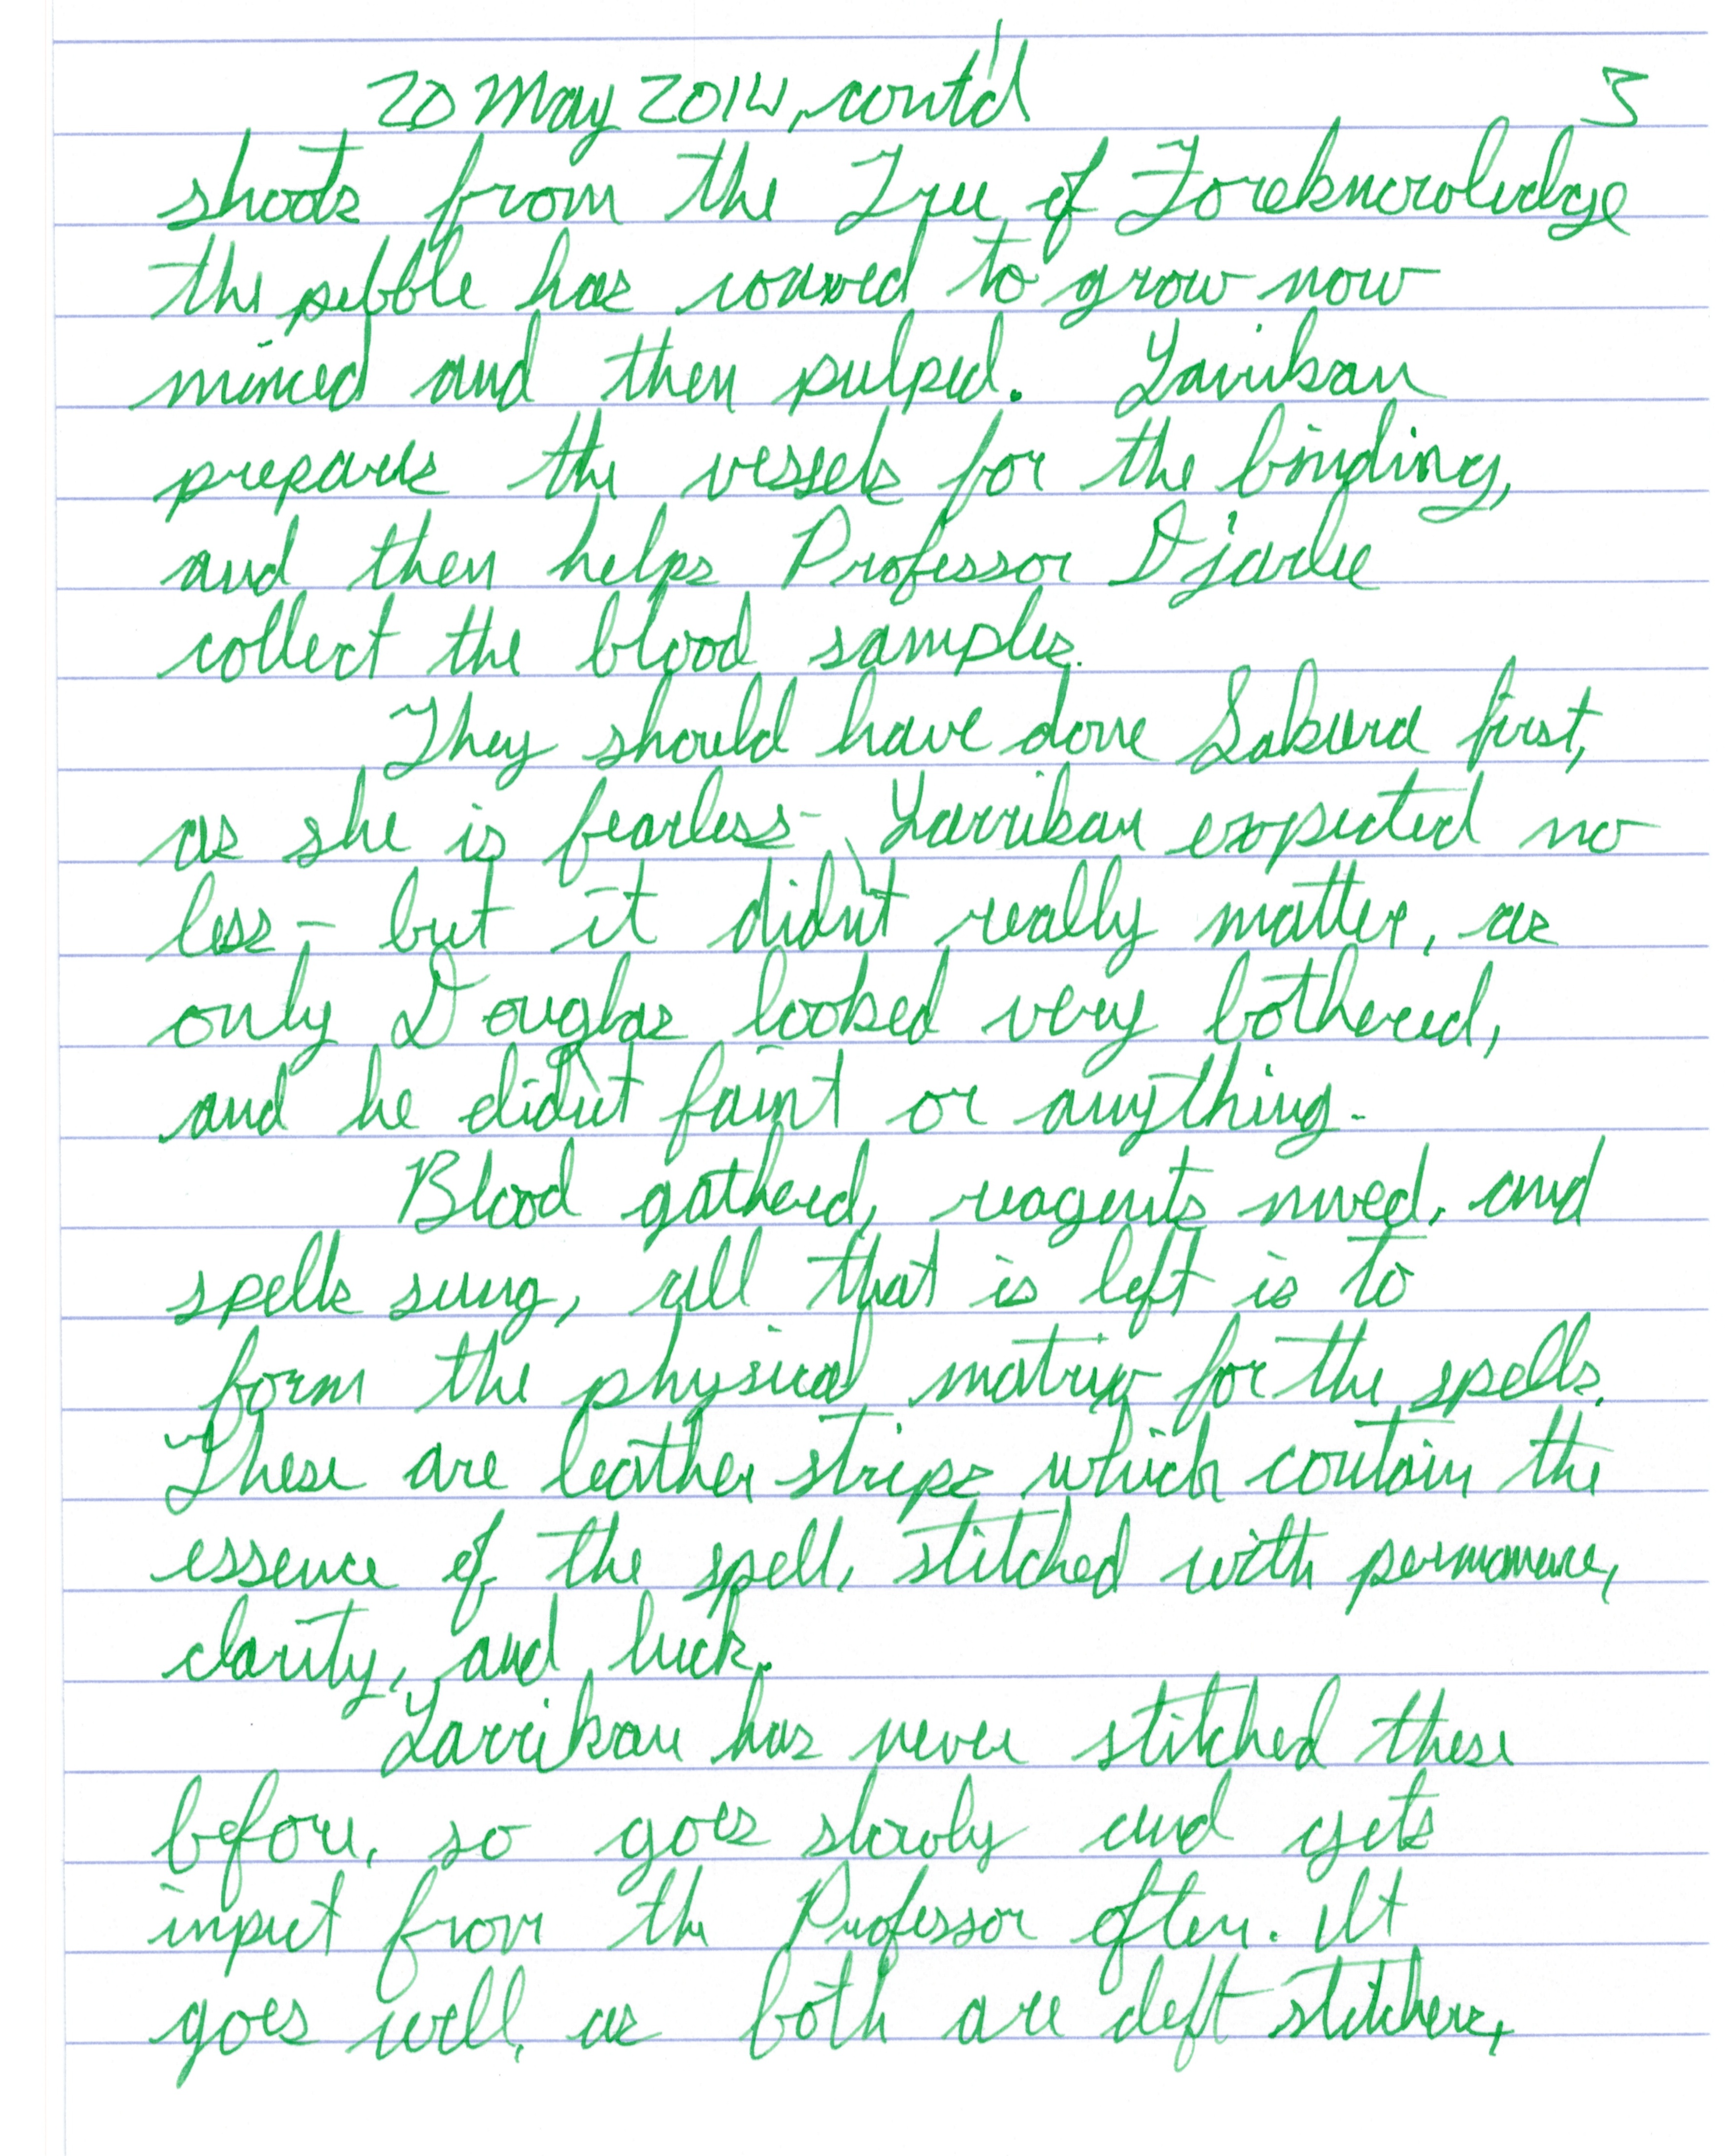 20 May 2014, cont'd 3
shoots from the Tree of Foreknowledge
the pebble has coaxed to grow now
minced and then pulped. Larrikan
prepares the vessels for the binding,
and then helps Professor Djarlie
collect the blood samples.
They should have done Sakura first,
as she is fearless - Larrikan expected no
less - but it didn't really matter, as
only Douglas looked very bothered,
and he didn't faint or anything.
Blood gathered, reagents mixed, and
spells sung, all that is left is to
form the physical matrix for the spells.
These are leather strips which contain the
essence of the spell, stitched with permanence,
clarity, and luck.
Larrikan has never stitched these
before, so goes slowly and gets
input from the Professor often. It
goes well, as both are deft stitchers,